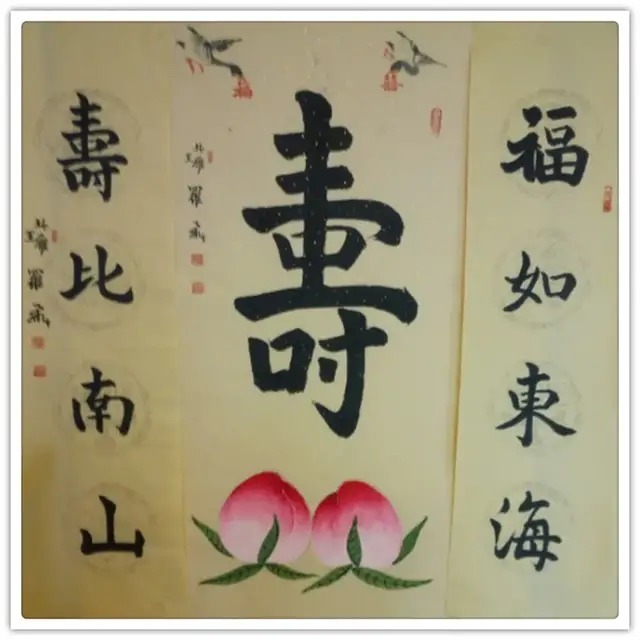 福如東海
壽
壽比南山